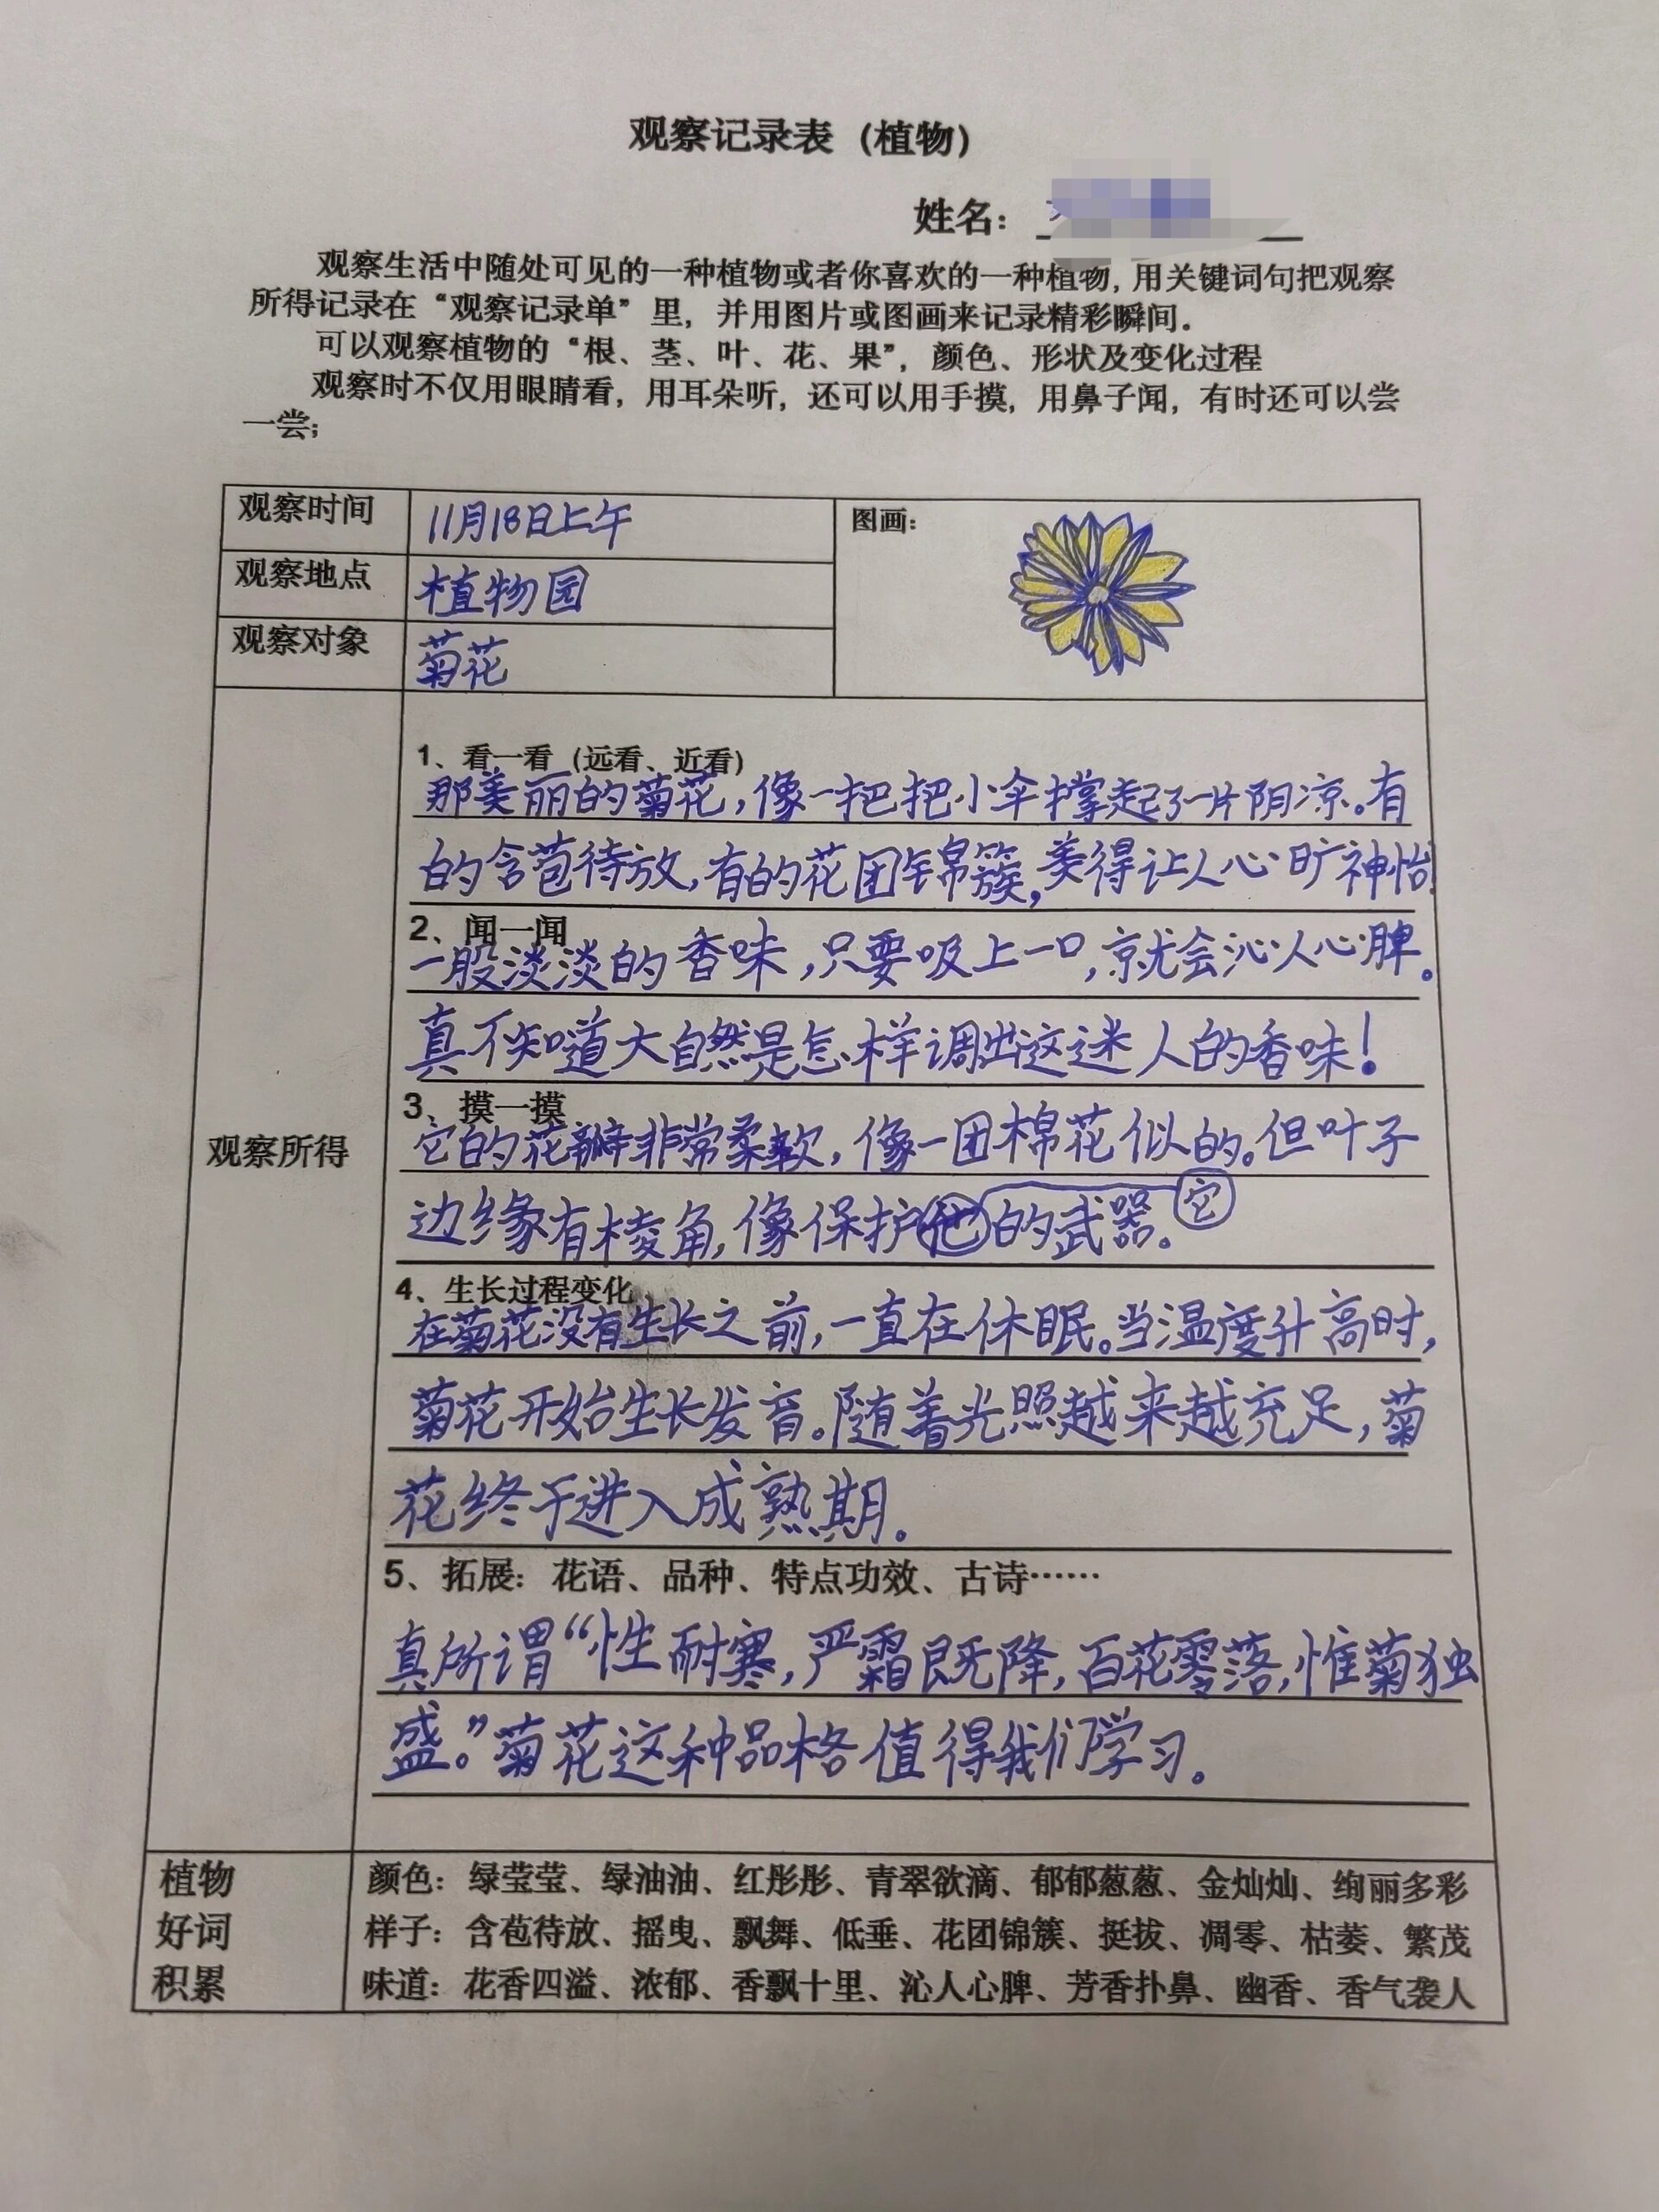 观察记录表（植物）
姓名：
观察生活中随处可见的一种植物或者你喜欢的一种植物，用关键词句把观察
所得记录在“观察记录单”里，并用图片或图画来记录精彩瞬间。
可以观察植物的“根、茎、叶、花、果”，颜色、形状及变化过程
观察时不仅用眼睛看，用耳朵听，还可以用手摸，用鼻子闻，有时还可以尝
一尝；
观察时间 11月18日上午 图画：
观察地点 植物园
观察对象 菊花
观察所得
1、看一看（远看、近看）
那美丽的菊花，像一把把小伞撑起了一片阴凉。有
的含苞待放，有的花团锦簇，美得让人心旷神怡！
2、闻一闻
一股淡淡的香味，只要吸上一口，就会沁人心脾。
真不知道大自然是怎样调出这迷人的香味！
3、摸一摸
它的花瓣非常柔软，像一团棉花似的。但叶子
边缘有棱角，像保护它的武器。
4、生长过程变化
在菊花没有生长之前，一直在休眠。当温度升高时，
菊花开始生长发育。随着光照越来越充足，菊
花终于进入成熟期。
5、拓展：花语、品种、特点功效、古诗……
真所谓“性耐寒，严霜既降，百花零落，惟菊独
盛。”菊花这种品格值得我们学习。
植物
好词
积累
颜色：绿莹莹、绿油油、红彤彤、青翠欲滴、郁郁葱葱、金灿灿、绚丽多彩
样子：含苞待放、摇曳、飘舞、低垂、花团锦簇、挺拔、凋零、枯萎、繁茂
味道：花香四溢、浓郁、香飘十里、沁人心脾、芳香扑鼻、幽香、香气袭人